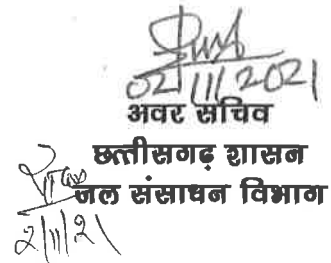 02/11/2021
अवर सचिव
छत्तीसगढ़ शासन
जल संसाधन विभाग
2/11/21